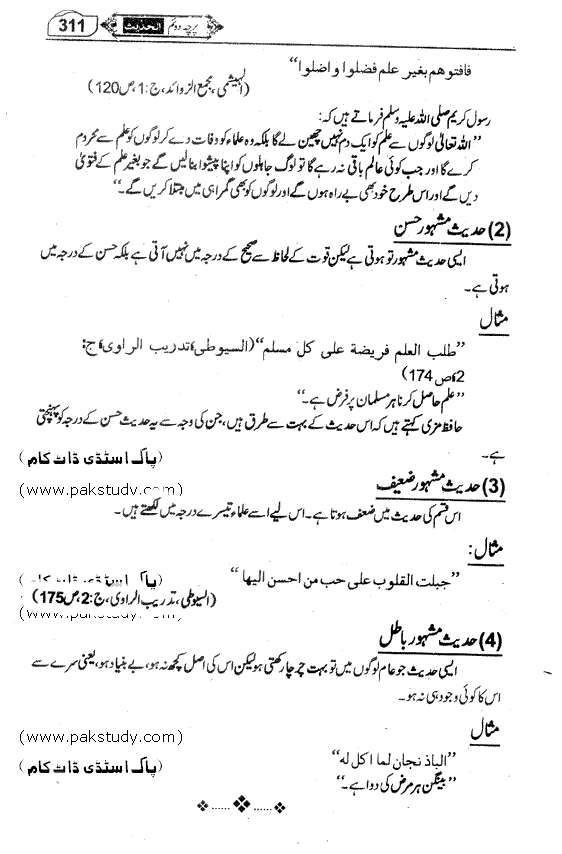 پرچہ دوئم الحدیث 311
فافتوهم بغیر علم فضلوا و اضلوا‘‘
(الہیثمی، مجمع الزوائد، ج:1، ص120)
رسول کریم صلی اللہ علیہ وسلم فرماتے ہیں کہ:
’’اللہ تعالیٰ لوگوں سے علم کو ایک دم نہیں چھین لے گا بلکہ وہ علماء کو وفات دے کر لوگوں کو علم سے محروم
کرے گا اور جب کوئی عالم باقی نہ رہے گا تو لوگ جاہلوں کو اپنا پیشوا بنا لیں گے جو بغیر علم کے فتویٰ
دیں گے اور اس طرح خود بھی بے راہ ہوں گے اور لوگوں کو بھی گمراہی میں مبتلا کریں گے۔‘‘
(2) حدیث مشہور حسن
ایسی حدیث مشہور تو ہوتی ہے لیکن قوت کے لحاظ سے صحیح کے درجہ میں نہیں آتی ہے بلکہ حسن کے درجہ میں
ہوتی ہے۔
مثال
’’طلب العلم فریضة علی کل مسلم‘‘ (السیوطی، تدریب الراوی، ج:
2، ص174)
’’علم حاصل کرنا ہر مسلمان پر فرض ہے۔‘‘
حافظ مزی کہتے ہیں کہ اس حدیث کے بہت سے طرق ہیں، جن کی وجہ سے یہ حدیث حسن کے درجہ کو پہنچتی
ہے۔ (پاک اسٹڈی ڈاٹ کام)
(3) حدیث مشہور ضعیف (www.pakstudy.com)
اس قسم کی حدیث میں ضعف ہوتا ہے۔ اس لیے اسے علماء تیسرے درجہ میں لکھتے ہیں۔
مثال:
’’جبلت القلوب علی حب من احسن الیها‘‘ (پاک اسٹڈی ڈاٹ کام)
(السیوطی، تدریب الراوی، ج:2، ص175)
(www.pakstudy.com)
(4) حدیث مشہور باطل
ایسی حدیث جو عام لوگوں میں تو بہت چرچا رکھتی ہو لیکن اس کی اصل کچھ نہ ہو، بے بنیاد ہو، یعنی سرے سے
اس کا کوئی وجود ہی نہ ہو۔
مثال (www.pakstudy.com)
’’الباذ نجان لما اکل له‘‘
(پاک اسٹڈی ڈاٹ کام)
’’بینگن ہر مرض کی دوا ہے۔‘‘